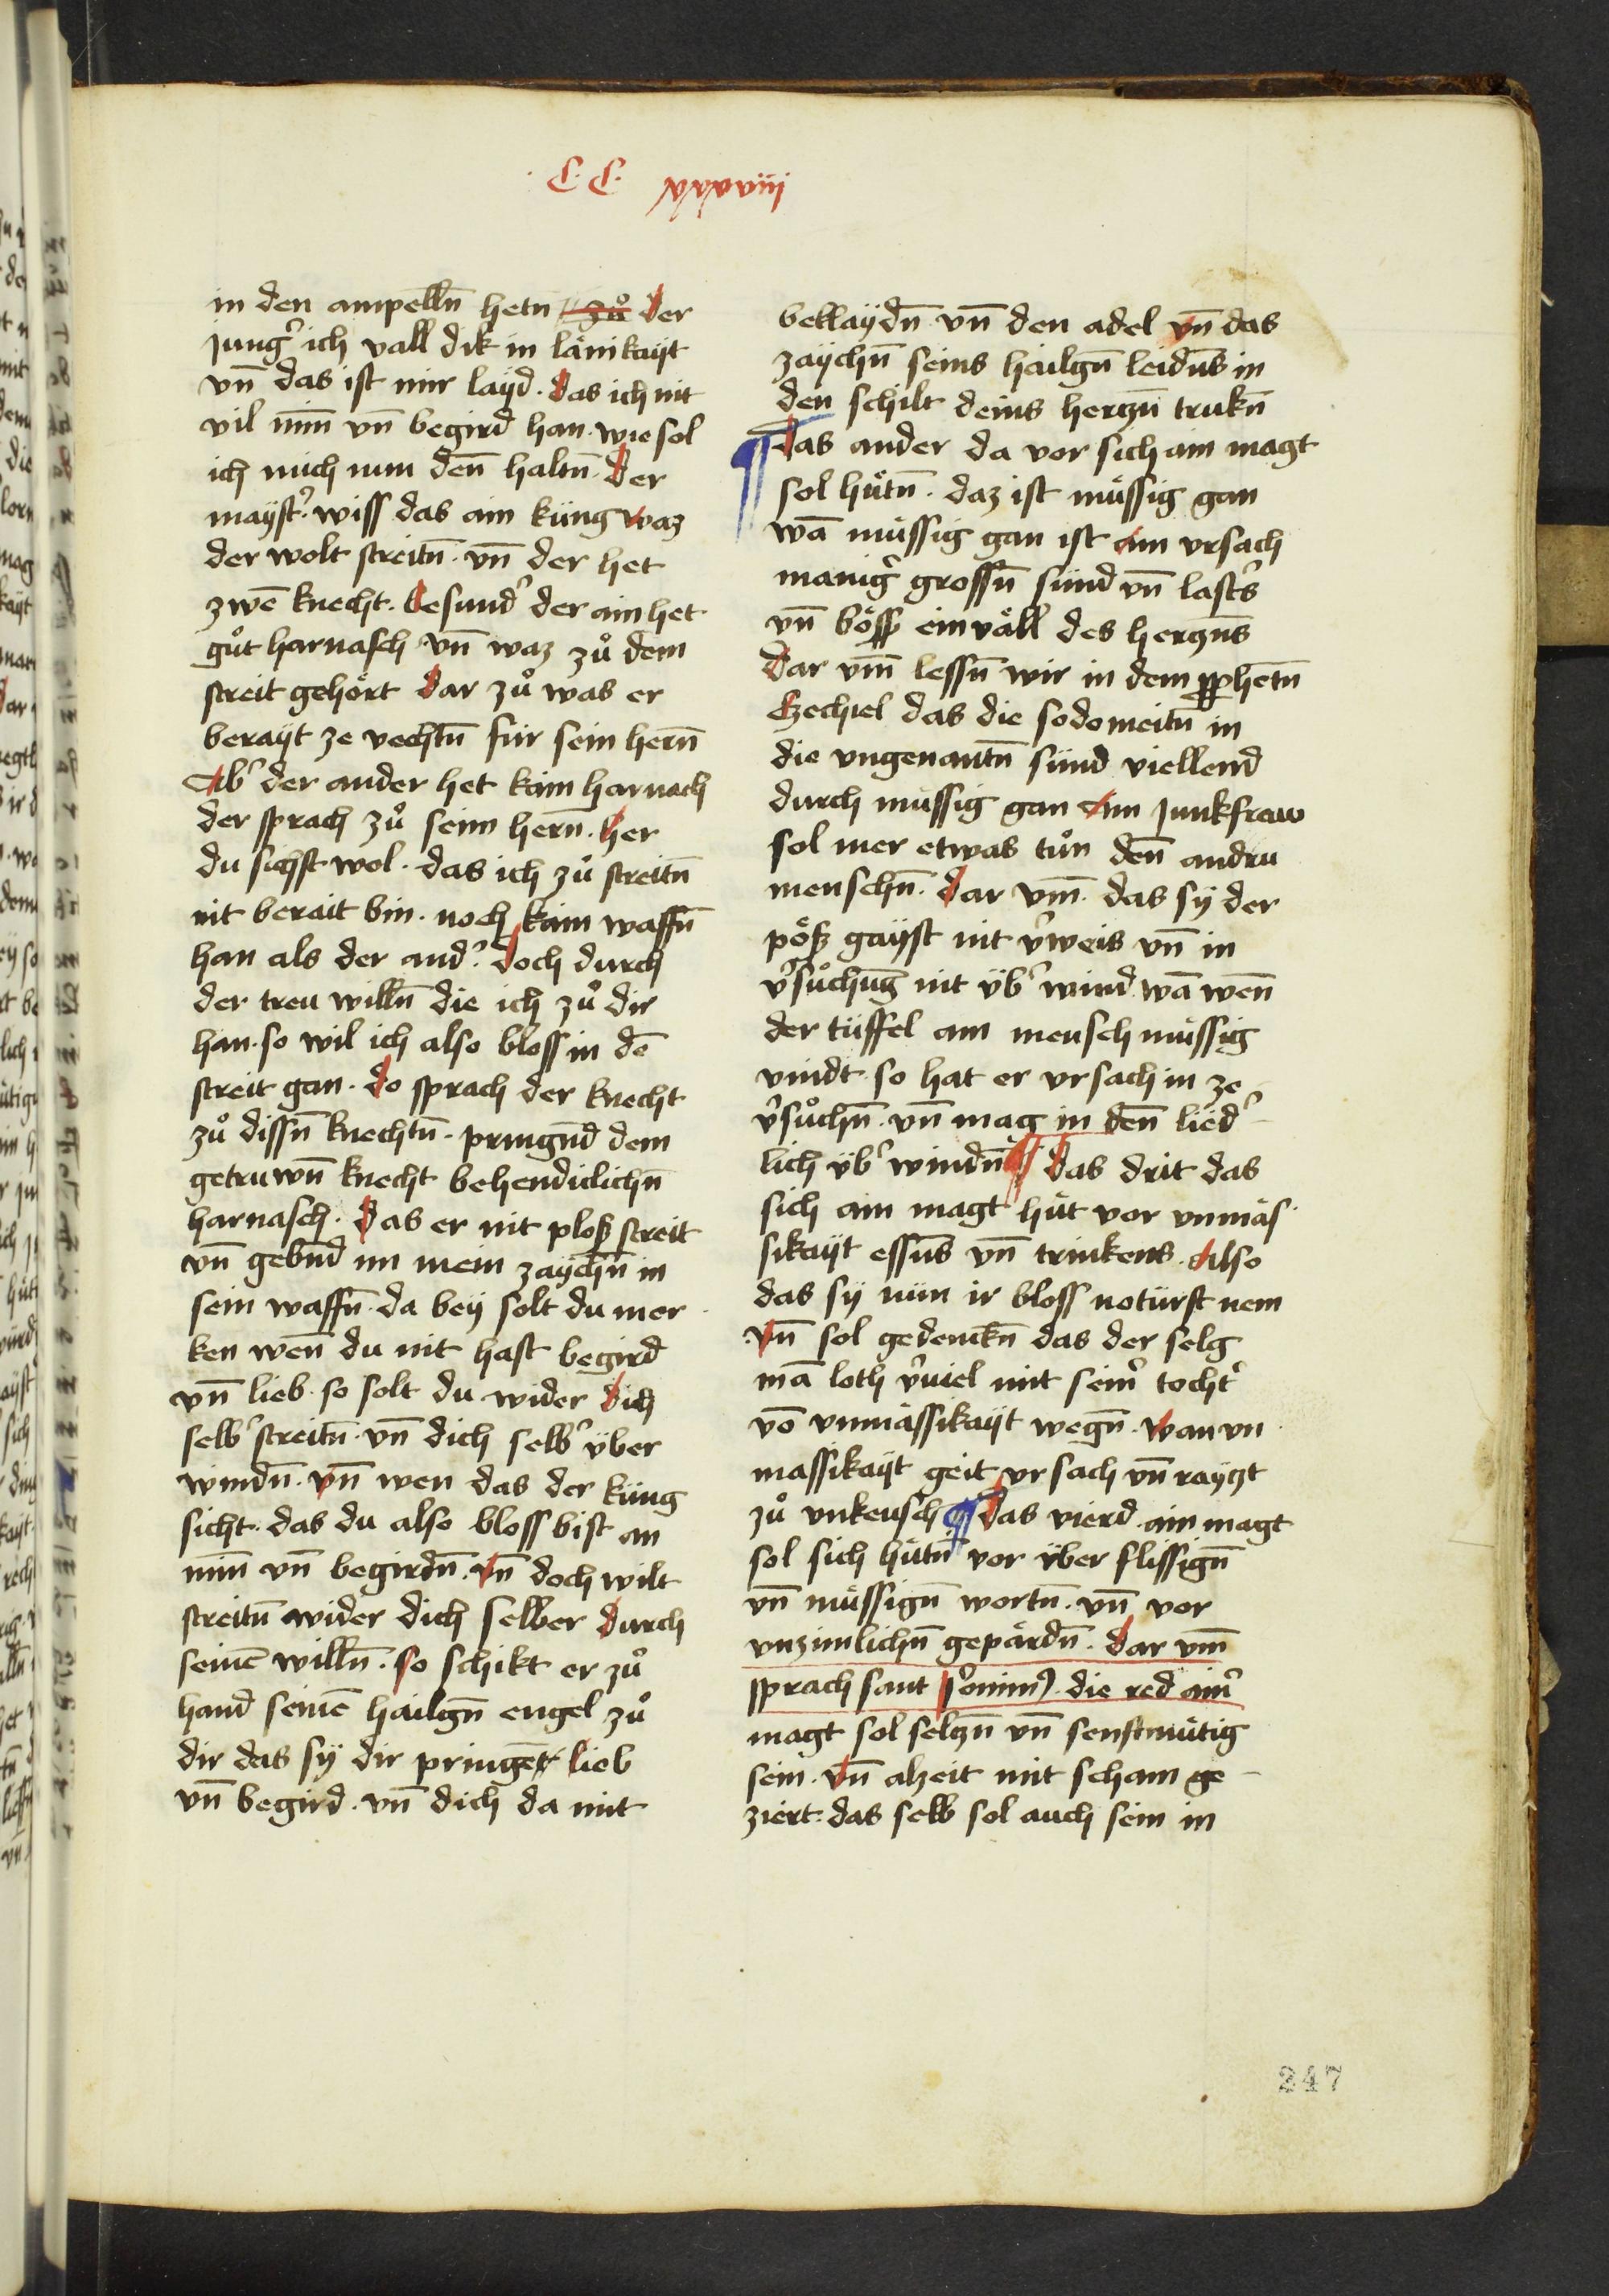 ·C·C· xxxviij
in den ampelln̄ hetn zuͦ Der
jungˀ ich vall dik in länikaÿt
vn̄ das ist mir laÿd · Das ich nit
vil min̄ vn̄ begird han · wie sol
ich mich nun den̄ haltn̄ · Der
maÿstˀ · wiss das ain küng waz
der wolt streitn̄ · vn̄ der het
zwē knecht · Besundˀ der ain het
guͦt harnasch vn̄ waz zuͦ dem
streit gehört Dar zuͦ was er
beraÿt ze vechtn̄ für sein hern̄
Abˀ der ander het kain harnach
der sprach zuͦ seim hern̄ · Her
du sichst wol · das ich zuͦ streitn̄
nit berait bin · noch kain waffn̄
han als der andˀ · Doch durch
der treu willn̄ die ich zuͦ dir
han · so wil ich also bloss in dē
streit gan · Do sprach der knecht
zuͦ dissn̄ knechtn̄ · pringn̄d dem
getruwn̄ knecht behendiclichn̄
harnasch · Das er nit ploß streit
vn̄ gebn̄d im mein zaÿchn̄ in
sein waffn̄ · da beÿ solt du mer
ken wen̄ du nit hast begird
vn̄ lieb · so solt du wider Dich
selbˀ streitn̄ · vn̄ dich selbˀ über
windn̄ · Vn̄ wen das der küng
sicht · das du also bloss bist an
min̄ vn̄ begirdn̄ · Vn̄ doch wilt
streitn̄ wider dich selber Durch
seinē willn̄ · So schikt er zuͦ
hand seinē hailgn̄ engel zuͦ
dir das sÿ dir pringēt lieb
vn̄ begird · vn̄ dich da mit
beklaÿdn̄ vn̄ den adel Vn̄ das
zaÿchn̄ seins hailgn̄ leidn̄s in
den schilt deins herczn̄ trukn̄
¶ Das ander da vor sich ain magt
sol hütn̄ · daz ist müssig gan
wā müssig gan ist Ain vrsach
manigˀ grossn̄ sünd vn̄ lastˀs
vn̄ böss einväll des herczn̄s
Dar vm̄ lessn̄ wir in dem pphetn̄
Ezechiel das die sodomeitn̄ in
die vngenantn̄ sünd viellend
durch müssig gan Ain junkfraw
sol mer etwas tuͦn den̄ andru
menschn̄ · Dar vm̄ · das sÿ der
pöß gaÿst nit vˀweis vn̄ in
vˀsuͦchung nit übˀ wind wā wen̄
der tüffel ain mensch müssig
vindt · so hat er vrsach in ze
vˀsuͦchn̄ · vn̄ mag in den̄ liedˀ
lich übˀ windn̄ ¶ Das drit das
sich ain magt hüt vor vnmäs
sikaÿt essn̄s vn̄ trinkens · Also
das sÿ nün ir bloss notürft nem
· Vn̄ sol gedenckn̄ das der selg
mā loth vˀuiel mit seinˀ tochtˀ
vō vnmässikaÿt wegn̄ · Wan vn
massikaÿt geit vrsach vn̄ raÿczt
zuͦ vnkeusch ¶ Das vierd · ain magt
sol sich hütn̄ vor über flissign̄
vn̄ müssign̄ wortn̄ · vn̄ vor
vnzimlichn̄ gepärdn̄ · Dar vm̄
sprach sant Jˀonimꝰ · die red ainˀ
magt sol selczn̄ vn̄ senftmütig
sein · Vn̄ alzeit mit scham ge
ziert · das selb sol auch sein in
247